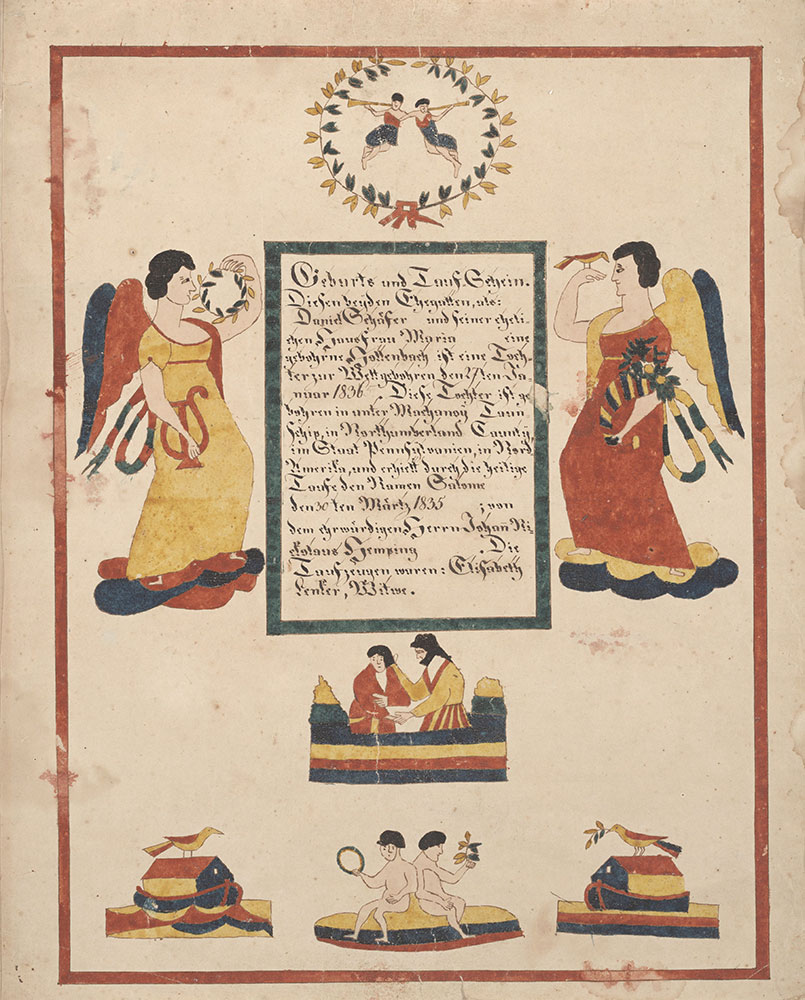 Geburts und Tauf Schein.
Diesen beyden Ehegatten, als:
Daniel Schäfer und seiner eheli-
chen Hausfrau Maria eine
gebohrne Hottenbach ist eine Toch-
ter zur Welt gebohren den 27ten Ja-
nuar 1836. Diese Tochter ist ge
bohren in unter Machanoy Taun
schip, in Northumberland Caunty,
im Staat Pennsylvanien, in Nord
Amerika, und erhielt durch die heilige
Taufe den Namen Salome
den 30ten Märtz 1835 ; von
dem ehrwürdigen Herrn Johan Ni-
kolaus Hemping . Die
Taufzeugen waren: Elisabeth
Lenker, Witwe.